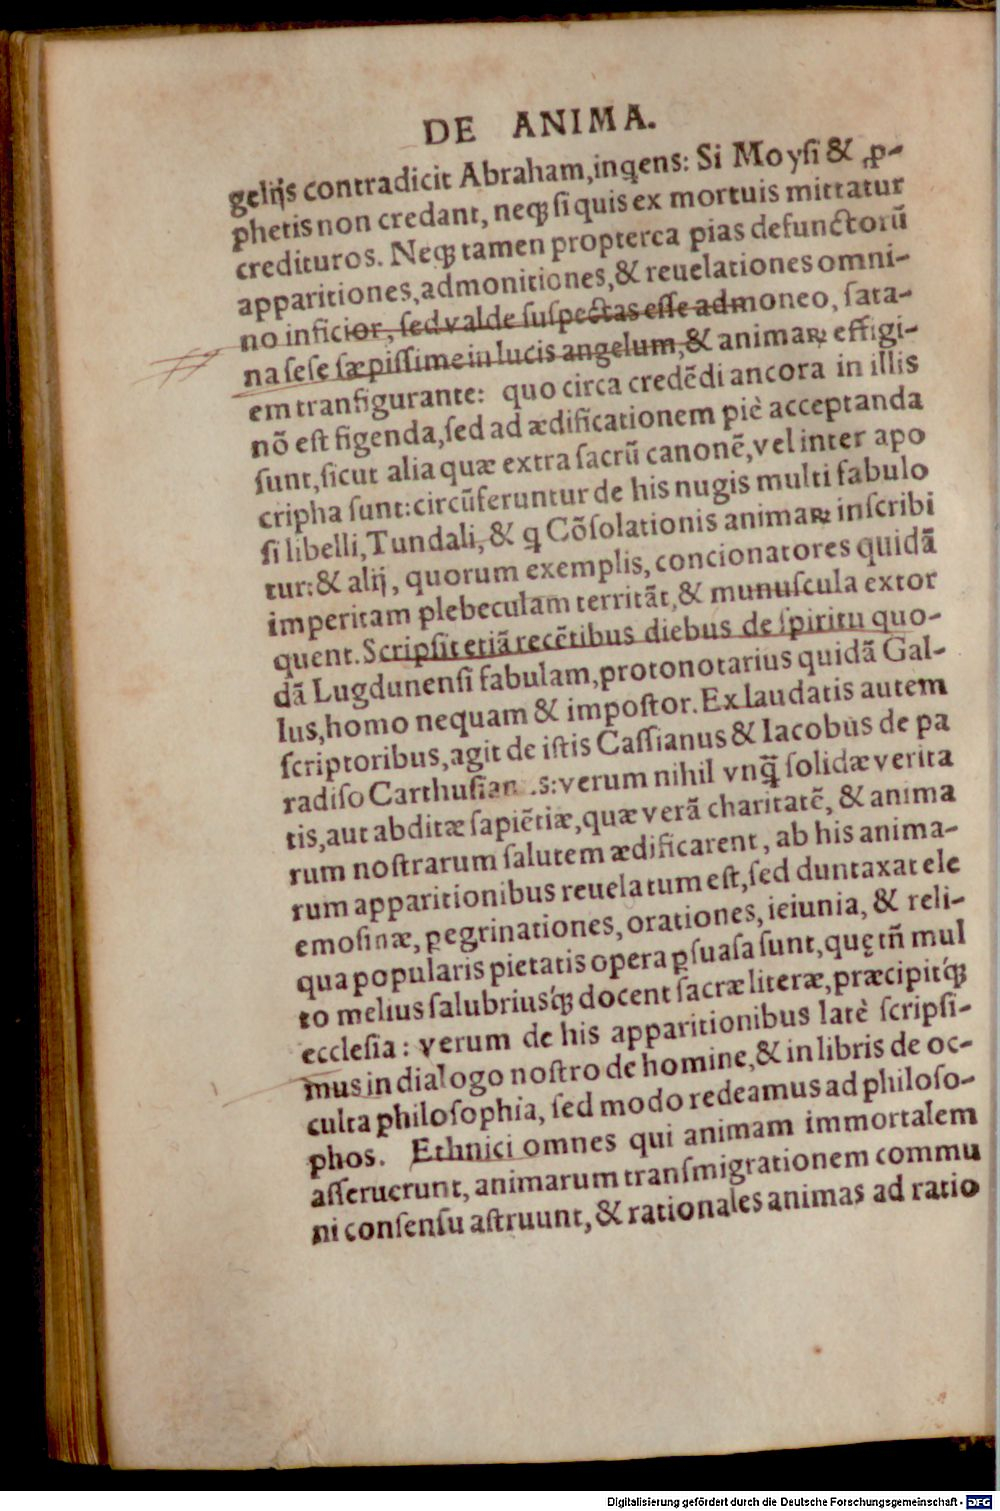 DE ANIMA.
gelijs contradicit Abraham,inqens: Si Moysi & ꝓ-
phetis non credant, neqꝫ si quis ex mortuis mittatur
credituros. Neqꝫ tamen propterea pias defunctorũ
apparitiones,admonitiones,& reuelationes omni-
no inficior, sed valde suspectas esse admoneo, sata-
na sese sæpissime in lucis angelum,& animaꝝ effigi-
em tranfigurante: quo circa credẽdi ancora in illis
nõ est figenda,sed ad ædificationem piè acceptanda
sunt,sicut alia quæ extra sacrũ canonẽ,vel inter apo
cripha sunt:circũferuntur de his nugis multi fabulo
si libelli,Tundali,& ꝗ Cõsolationis animaꝝ inscribi
tur:& alij, quorum exemplis, concionatores quidã
imperitam plebeculam territãt,& munuscula extor
quent. Scripsit etiã recẽtibus diebus de spiritu quo-
dã Lugdunensi fabulam,protonotarius quidã Gal-
lus,homo nequam & impostor. Ex laudatis autem
scriptoribus,agit de istis Cassianus & Iacobus de pa
radiso Carthusian s:verum nihil vnꝗ̃ solidæ verita
tis,aut abditæ sapiẽtiæ,quæ verã charitatẽ, & anima
rum nostrarum salutem ædificarent, ab his anima-
rum apparitionibus reuelatum est,sed duntaxat ele
emosinæ, ꝑegrinationes, orationes, ieiunia, & reli-
qua popularis pietatis opera ꝑsuasa sunt,quę tñ mul
to melius salubriusq́ꝫ docent sacræ literæ, præcipitq́ꝫ
ecclesia : verum de his apparitionibus latè scripsi-
mus in dialogo nostro de homine,& in libris de oc-
culta philosophia, sed modo redeamus ad philoso-
phos. Ethnici omnes qui animam immortalem
asseruerunt, animarum transmigrationem commu
ni consensu astruunt,& rationales animas ad ratio
Digitalisierung gefördert durch die Deutsche Forschungsgemeinschaft - DFG